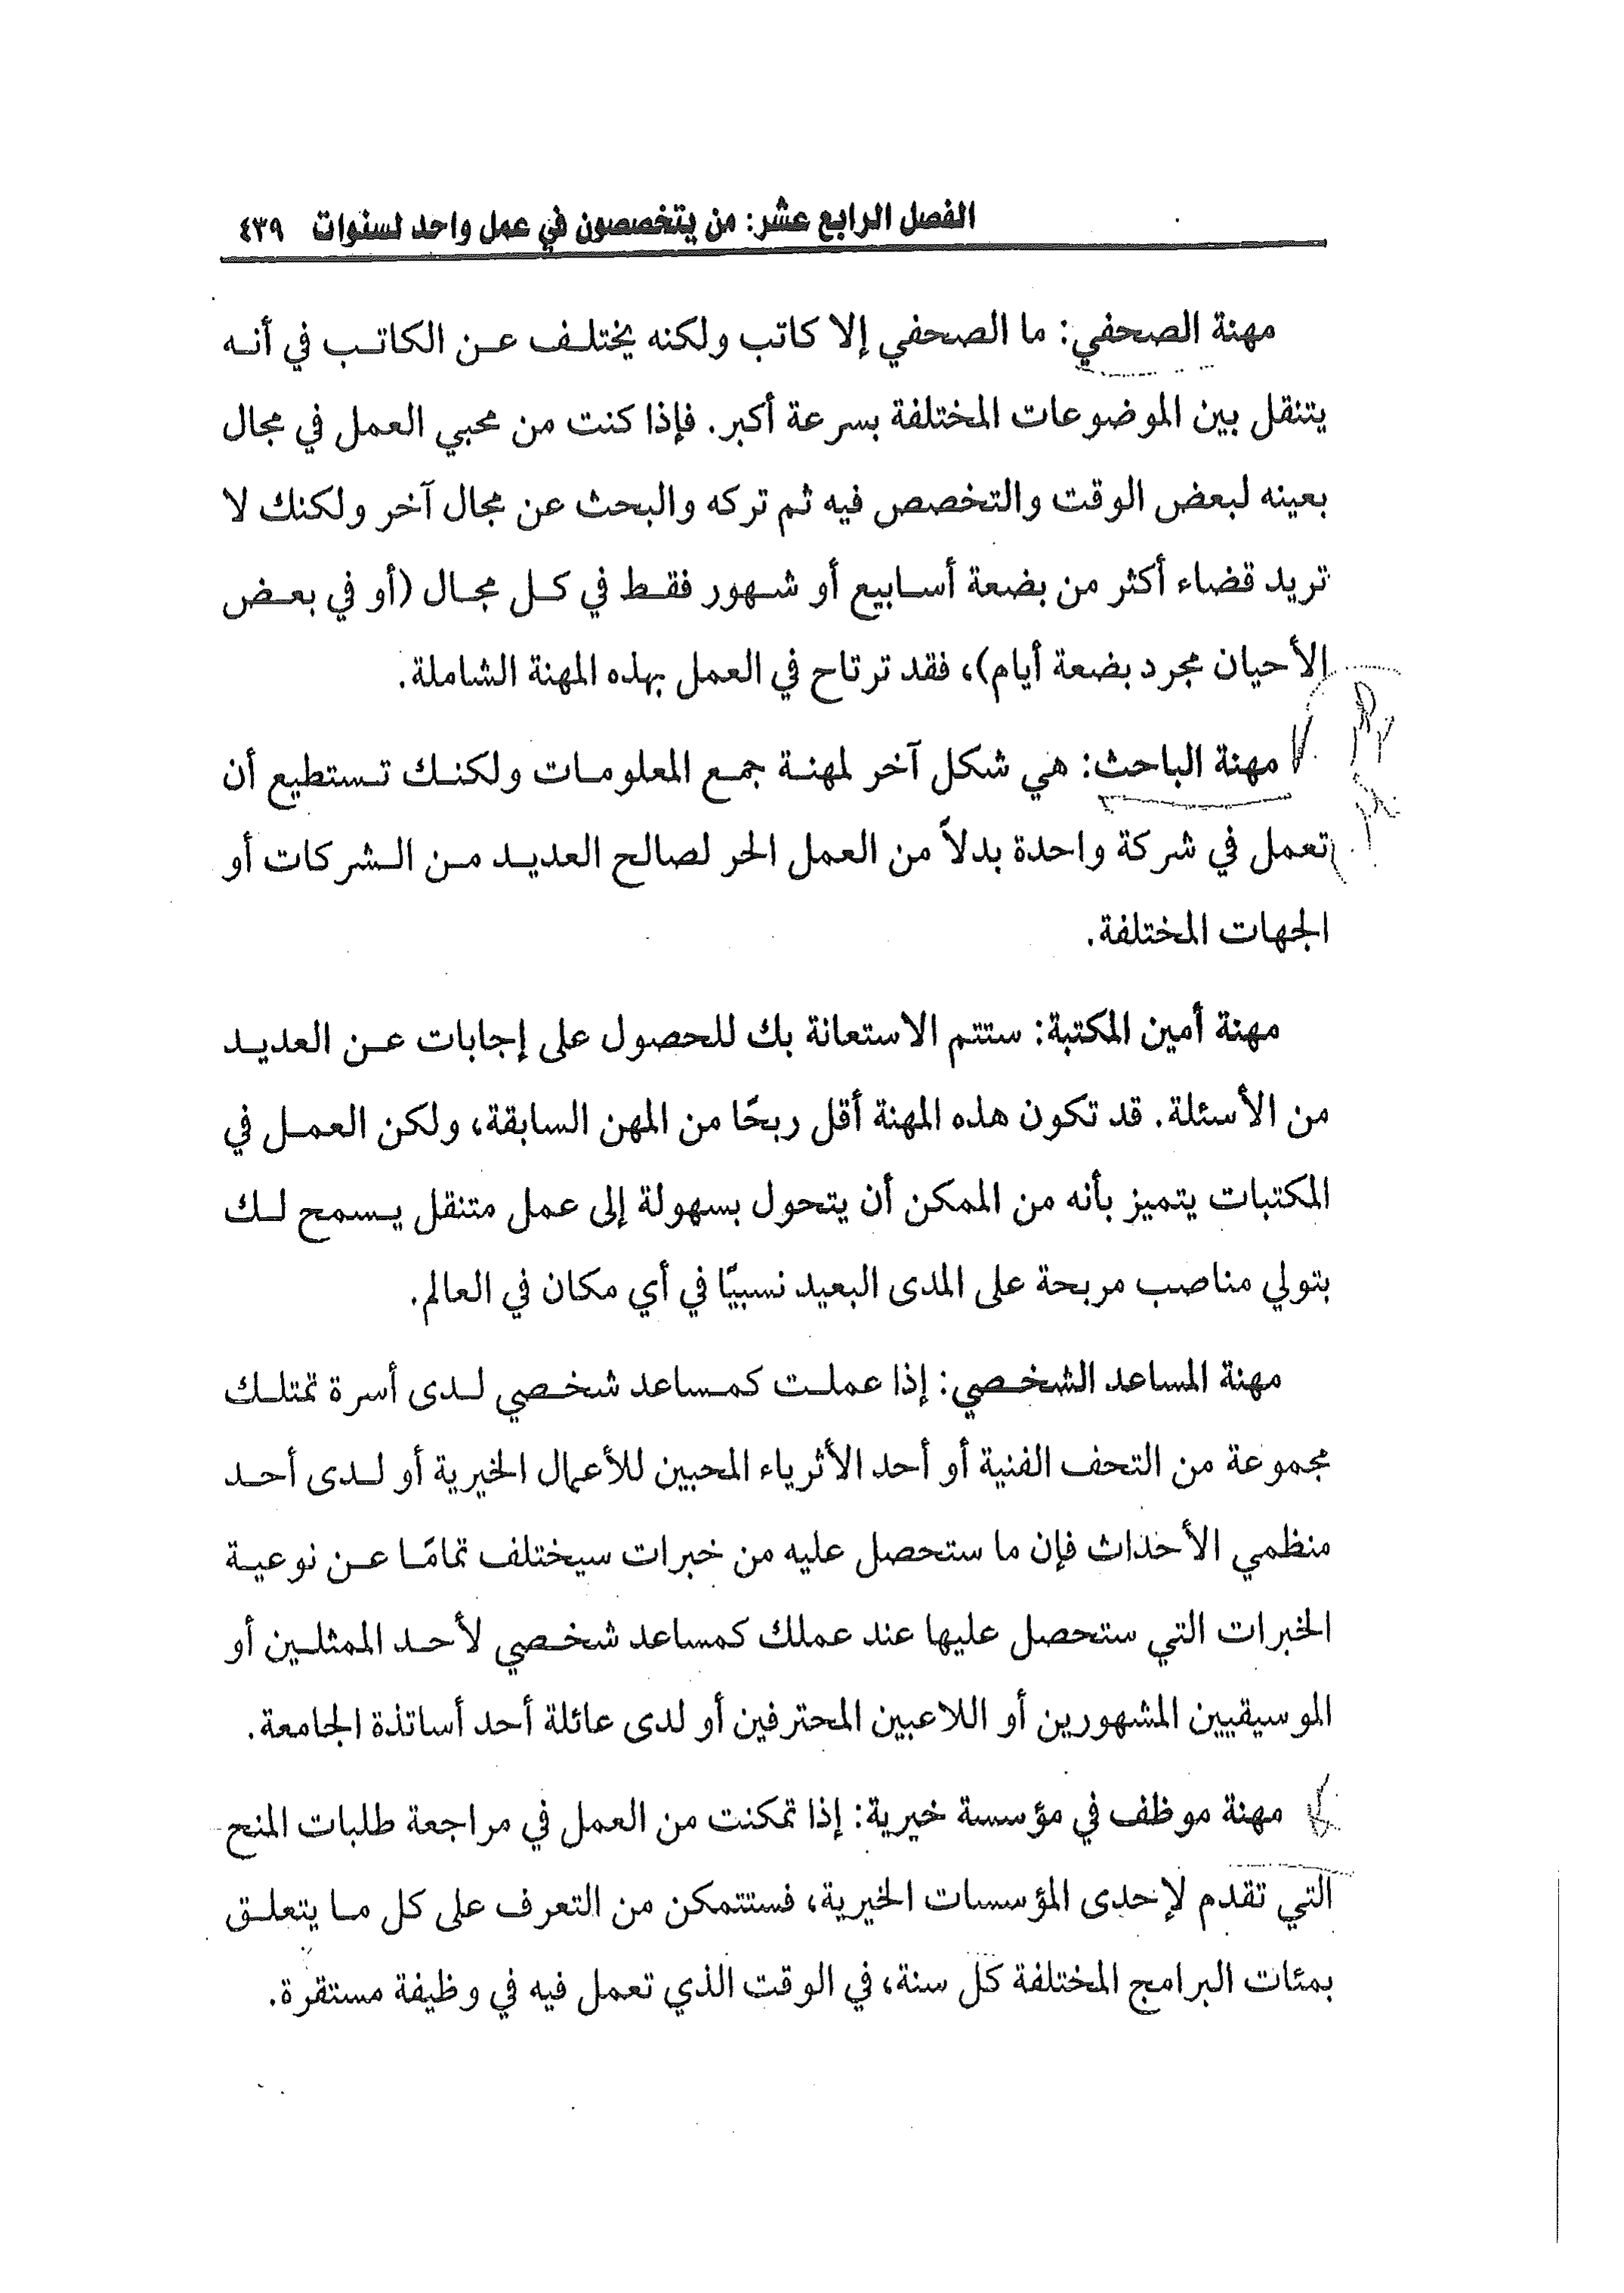 الفصل الرابع عشر: من يتخصصون في عمل واحد لسنوات ٤٣٩
مهنة الصحفي: ما الصحفي إلا كاتب ولكنه يختلف عن الكاتب في أنه
يتنقل بين الموضوعات المختلفة بسرعة أكبر. فإذا كنت من محبي العمل في مجال
بعينه لبعض الوقت والتخصص فيه ثم تركه والبحث عن مجال آخر ولكنك لا
تريد قضاء أكثر من بضعة أسابيع أو شهور فقط في كل مجال (أو في بعض
الأحيان مجرد بضعة أيام)، فقد ترتاح في العمل بهذه المهنة الشاملة.
مهنة الباحث: هي شكل آخر لمهنة جمع المعلومات ولكنك تستطيع أن
تعمل في شركة واحدة بدلاً من العمل الحر لصالح العديد من الشركات أو
الجهات المختلفة.
مهنة أمين المكتبة: ستتم الاستعانة بك للحصول على إجابات عن العديد
من الأسئلة. قد تكون هذه المهنة أقل ربحًا من المهن السابقة، ولكن العمل في
المكتبات يتميز بأنه من الممكن أن يتحول بسهولة إلى عمل متنقل يسمح لك
بتولي مناصب مربحة على المدى البعيد نسبيًا في أي مكان في العالم.
مهنة المساعد الشخصي: إذا عملت كمساعد شخصي لدى أسرة تمتلك
مجموعة من التحف الفنية أو أحد الأثرياء المحبين للأعمال الخيرية أو لدى أحد
منظمي الأحداث فإن ما ستحصل عليه من خبرات سيختلف تمامًا عن نوعية
الخبرات التي ستحصل عليها عند عملك كمساعد شخصي لأحد الممثلين أو
الموسيقيين المشهورين أو اللاعبين المحترفين أو لدى عائلة أحد أساتذة الجامعة.
مهنة موظف في مؤسسة خيرية: إذا تمكنت من العمل في مراجعة طلبات المنح
التي تقدم لإحدى المؤسسات الخيرية، فستتمكن من التعرف على كل ما يتعلق
بمئات البرامج المختلفة كل سنة، في الوقت الذي تعمل فيه في وظيفة مستقرة.